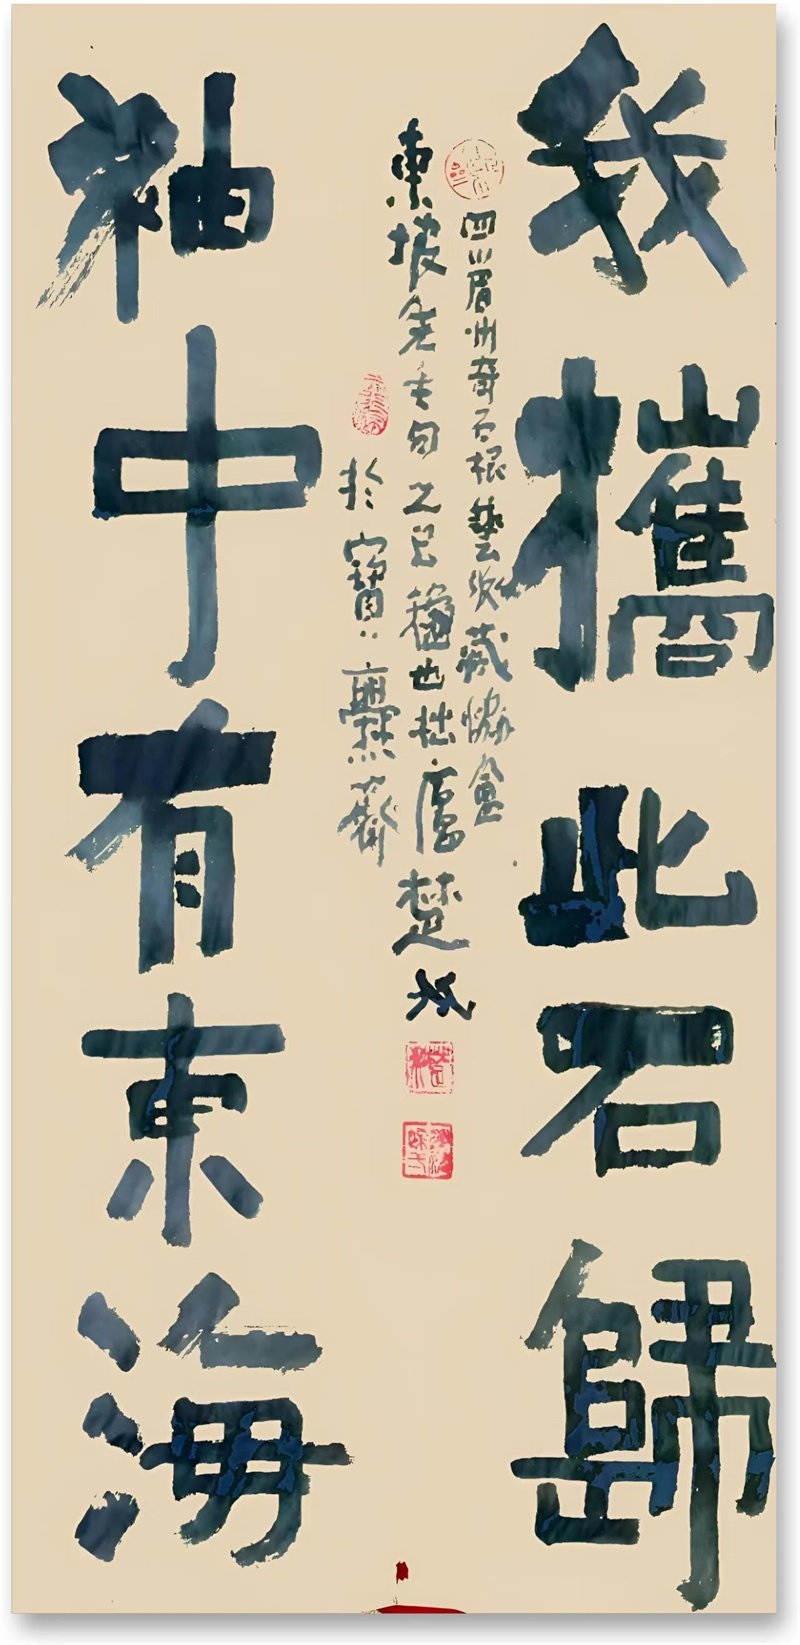 我攜此石歸
四川眉州奇石根藝收藏協會
東坡先生句之已龝也拙廬楚
於寶爨齋
袖中有東海